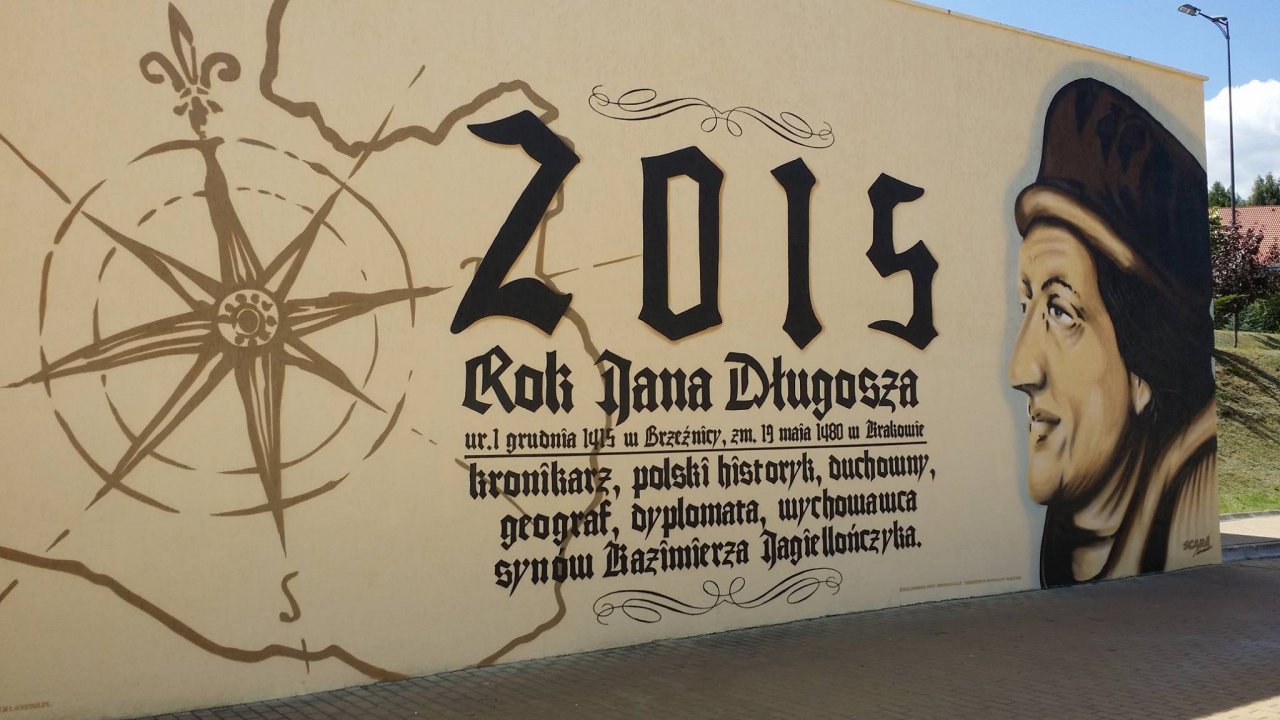 2015
Rok Jana Długosza
ur. 1 grudnia 1415 w Brzeźnicy, zm. 19 maja 1480 w Krakowie
kronikarz, polski historyk, duchowny,
geograf, dyplomata, wychowawca
synów Kazimierza Jagiellończyka.
S